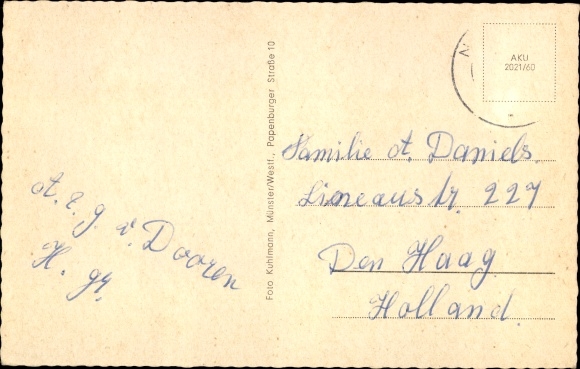 A. v. Dooren
H. gr.
Foto Kuhlmann, Münster/Westf., Papenburger Straße 10
AKU
2021/60
Familie A. Daniels.
str. 227
Den Haag
Holland.